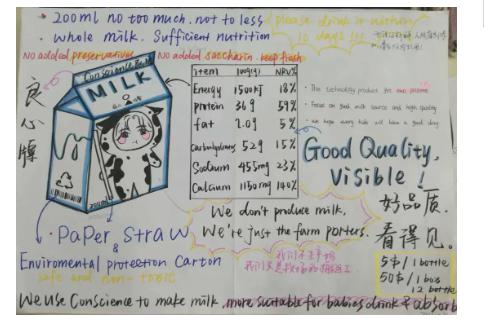 • 200ml no too much. not to less
• whole milk. Sufficient nutrition
please drink it within
10 days!!!
NO added preservatives NO added saccharin keep fresh
良心牌
Conscience
MILK
200ml
item 100g(g) NRV%
Energy 1500KJ 18%
protein 36g 59%
fat 2.0g 5%
carbohydrates 52g 15%
Sodium 455mg 23%
Calcium 1150mg 140%
• This technology product for our
• Focus on good milk source and high quality
• we hope every kids will have a good day
Good Quality,
Visible!
好品质.
看得见。
We don't produce milk,
We're just the farm porters.
• Paper Straw
&
Enviromental protection Carton
safe and non-toxic
我们不生产奶
5$/1 bottle
50$/1 box
12 bottle
We use Conscience to make milk, more suitable for babies drink & absorb